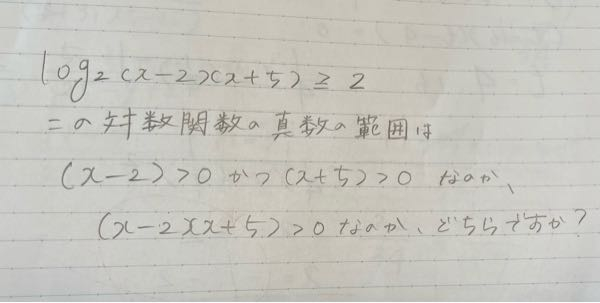 log₂(x-2)(x+5)≧2
この対数関数の真数の範囲は
(x-2)>0かつ(x+5)>0なのか、
(x-2)(x+5)>0なのか、どちらですか?